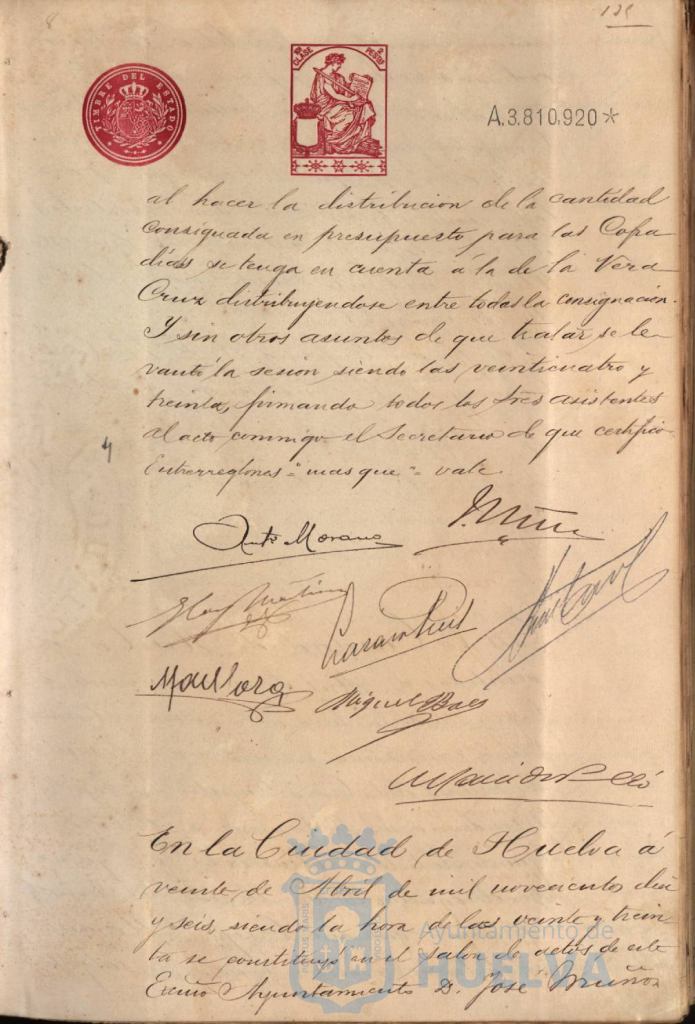 125
TIMBRE DEL ESTADO
10ª CLASE 2 PESETAS
A.3.810.920*
al hacer la distribucion de la cantidad
consignada en presupuesto para las Cofra
días se tenga en cuenta á la de la Vera
Cruz distribuyendose entre todas la consignación.
Y sin otros asuntos de que tratar, se le-
vantó la sesion siendo las veinticuatro y
treinta, firmando todos los Sres asistentes
al acto conmigo el Secretario de que certifico
Entrerreglones = "mas que" = vale.
Antº Morano
Miguel Baez
En la Ciudad de Huelva á
veinte de Abril de mil novecientos diez
y seis, siendo la hora de las veinte y trein
ta se constituyó en el Salon de actos de este
Excmo Ayuntamiento D. José Muñoz
Ayuntamiento de
HUELVA